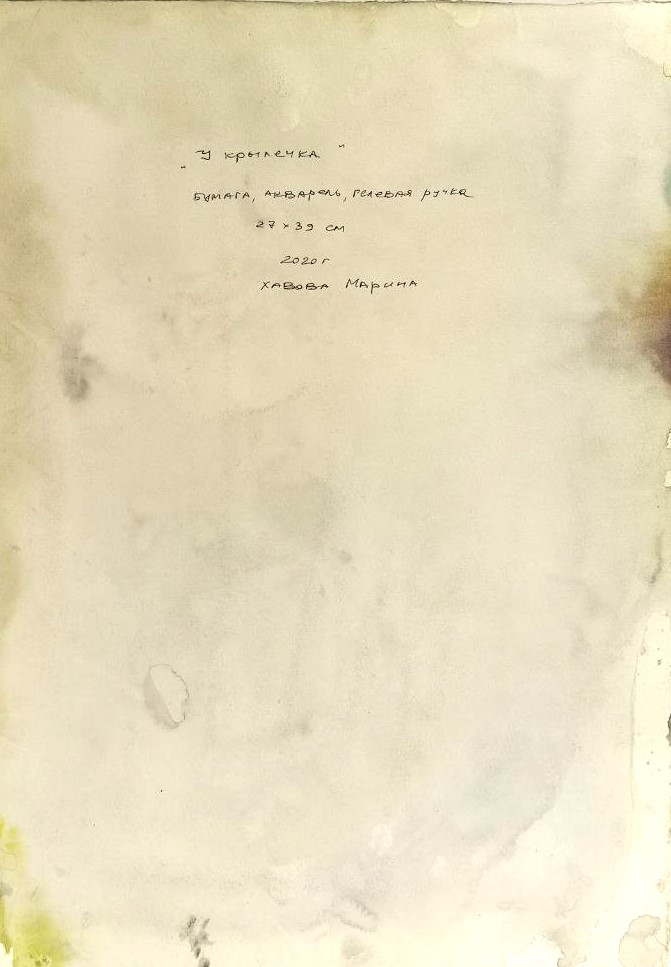 „У крылечка"
Бумага, акварель, гелевая ручка
27 × 39 см
2020 г
Хавова Марина